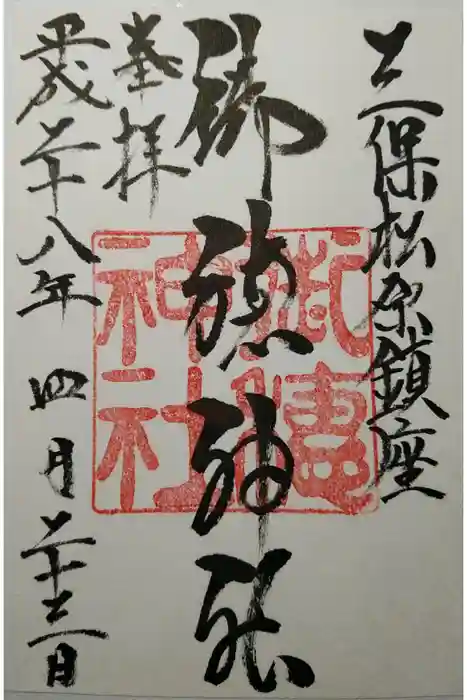 三保松原鎮座
御穂神社
奉拝
平成二十八年四月二十三日
御穂
神社